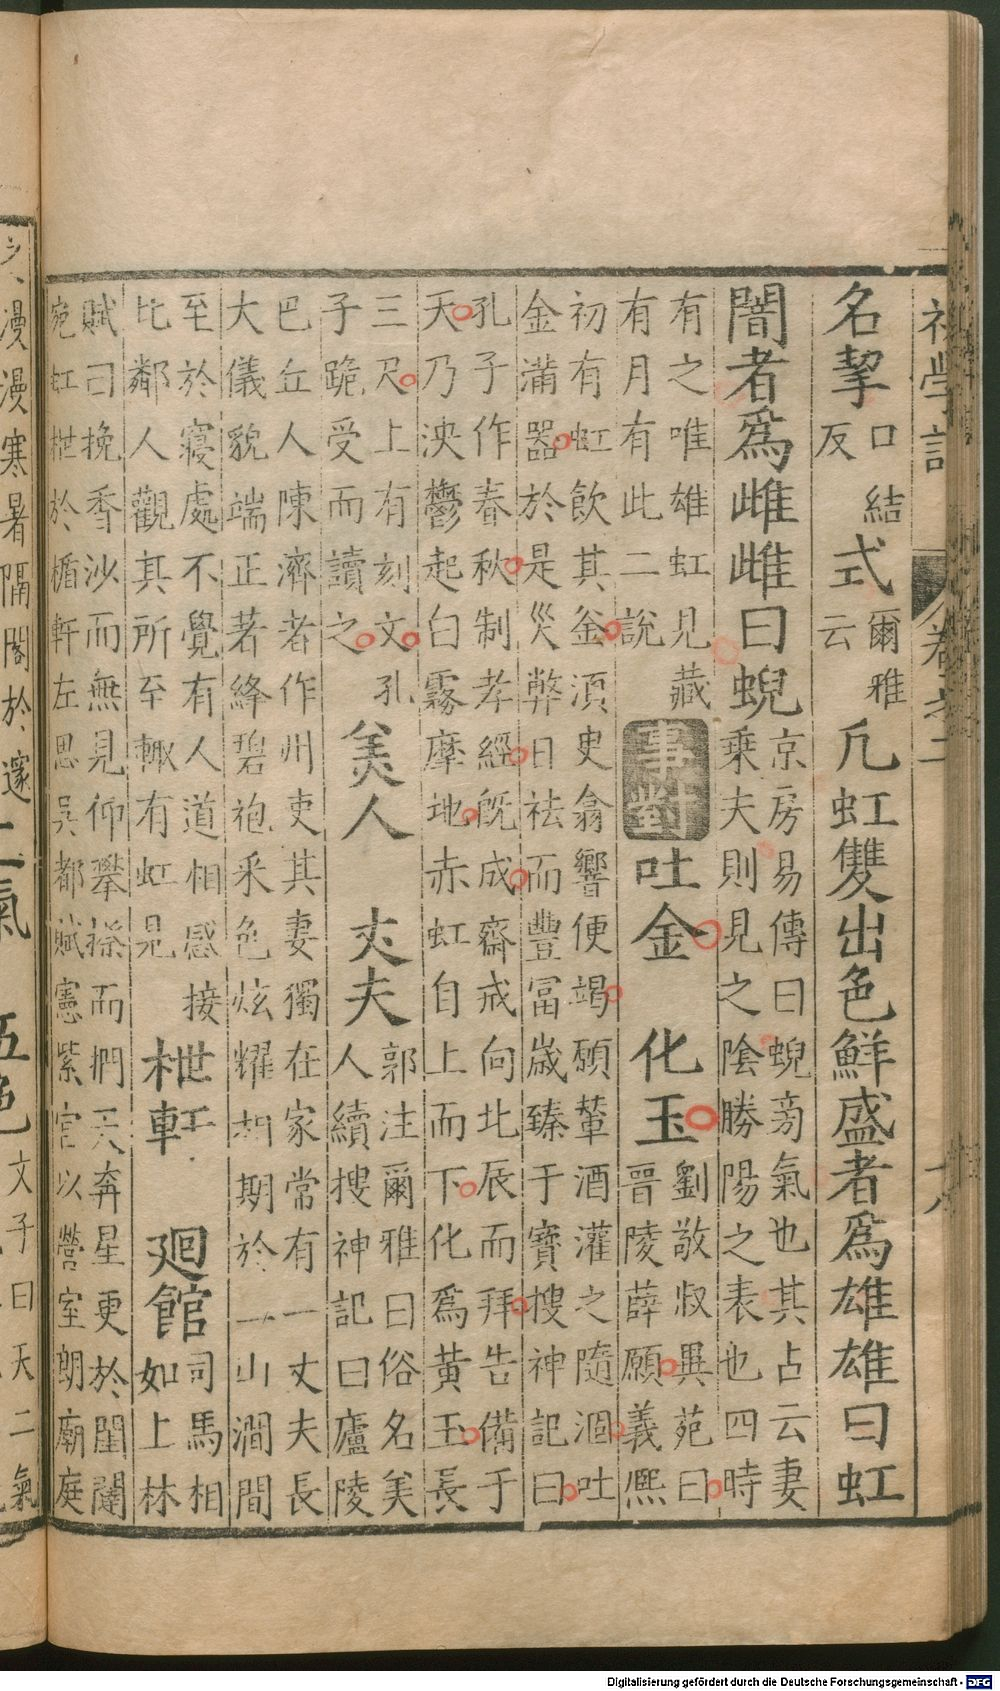 初學記 卷之二
名挈口結反式爾雅云凡虹雙出色鮮盛者爲雄雄曰虹
闇者爲雌雌曰蜺京房易傳曰蜺旁氣也其占云妻
乘夫則見之陰勝陽之表也四時
有之唯雄虹見藏
有月有此二說
事對 吐金 化玉 劉敬叔異苑曰
晉陵薛願義熙
初有虹飲其釜湏史翕響便竭願輦酒灌之隨涸吐
金滿器於是災弊日祛而豐富歲臻于寶搜神記曰
孔子作春秋制孝經旣成齋戒向北辰而拜告備于
天乃泱鬱起白霧摩地赤虹自上而下化爲黃玉長
三尺上有刻文孔
子跪受而讀之
美人 丈夫 郭注爾雅曰俗名美
人續搜神記曰廬陵
巴丘人陳濟者作州吏其妻獨在家常有一丈夫長
大儀貌端正著絳碧袍采色炫耀相期於一山澗間
至於寢處不覺有人道相感接
比鄰人觀其所至輙有虹見
枻軒 廻館 司馬相
如上林
賦曰挽香沙而無見仰攀橑而捫天奔星更於閨闥
宛虹枻於楯軒左思吳都賦憲紫宮以營室朗廟庭
之漫漫寒暑隔閡於邃 二氣 五色 文子曰天二氣
Digitalisierung gefördert durch die Deutsche Forschungsgemeinschaft - DFG